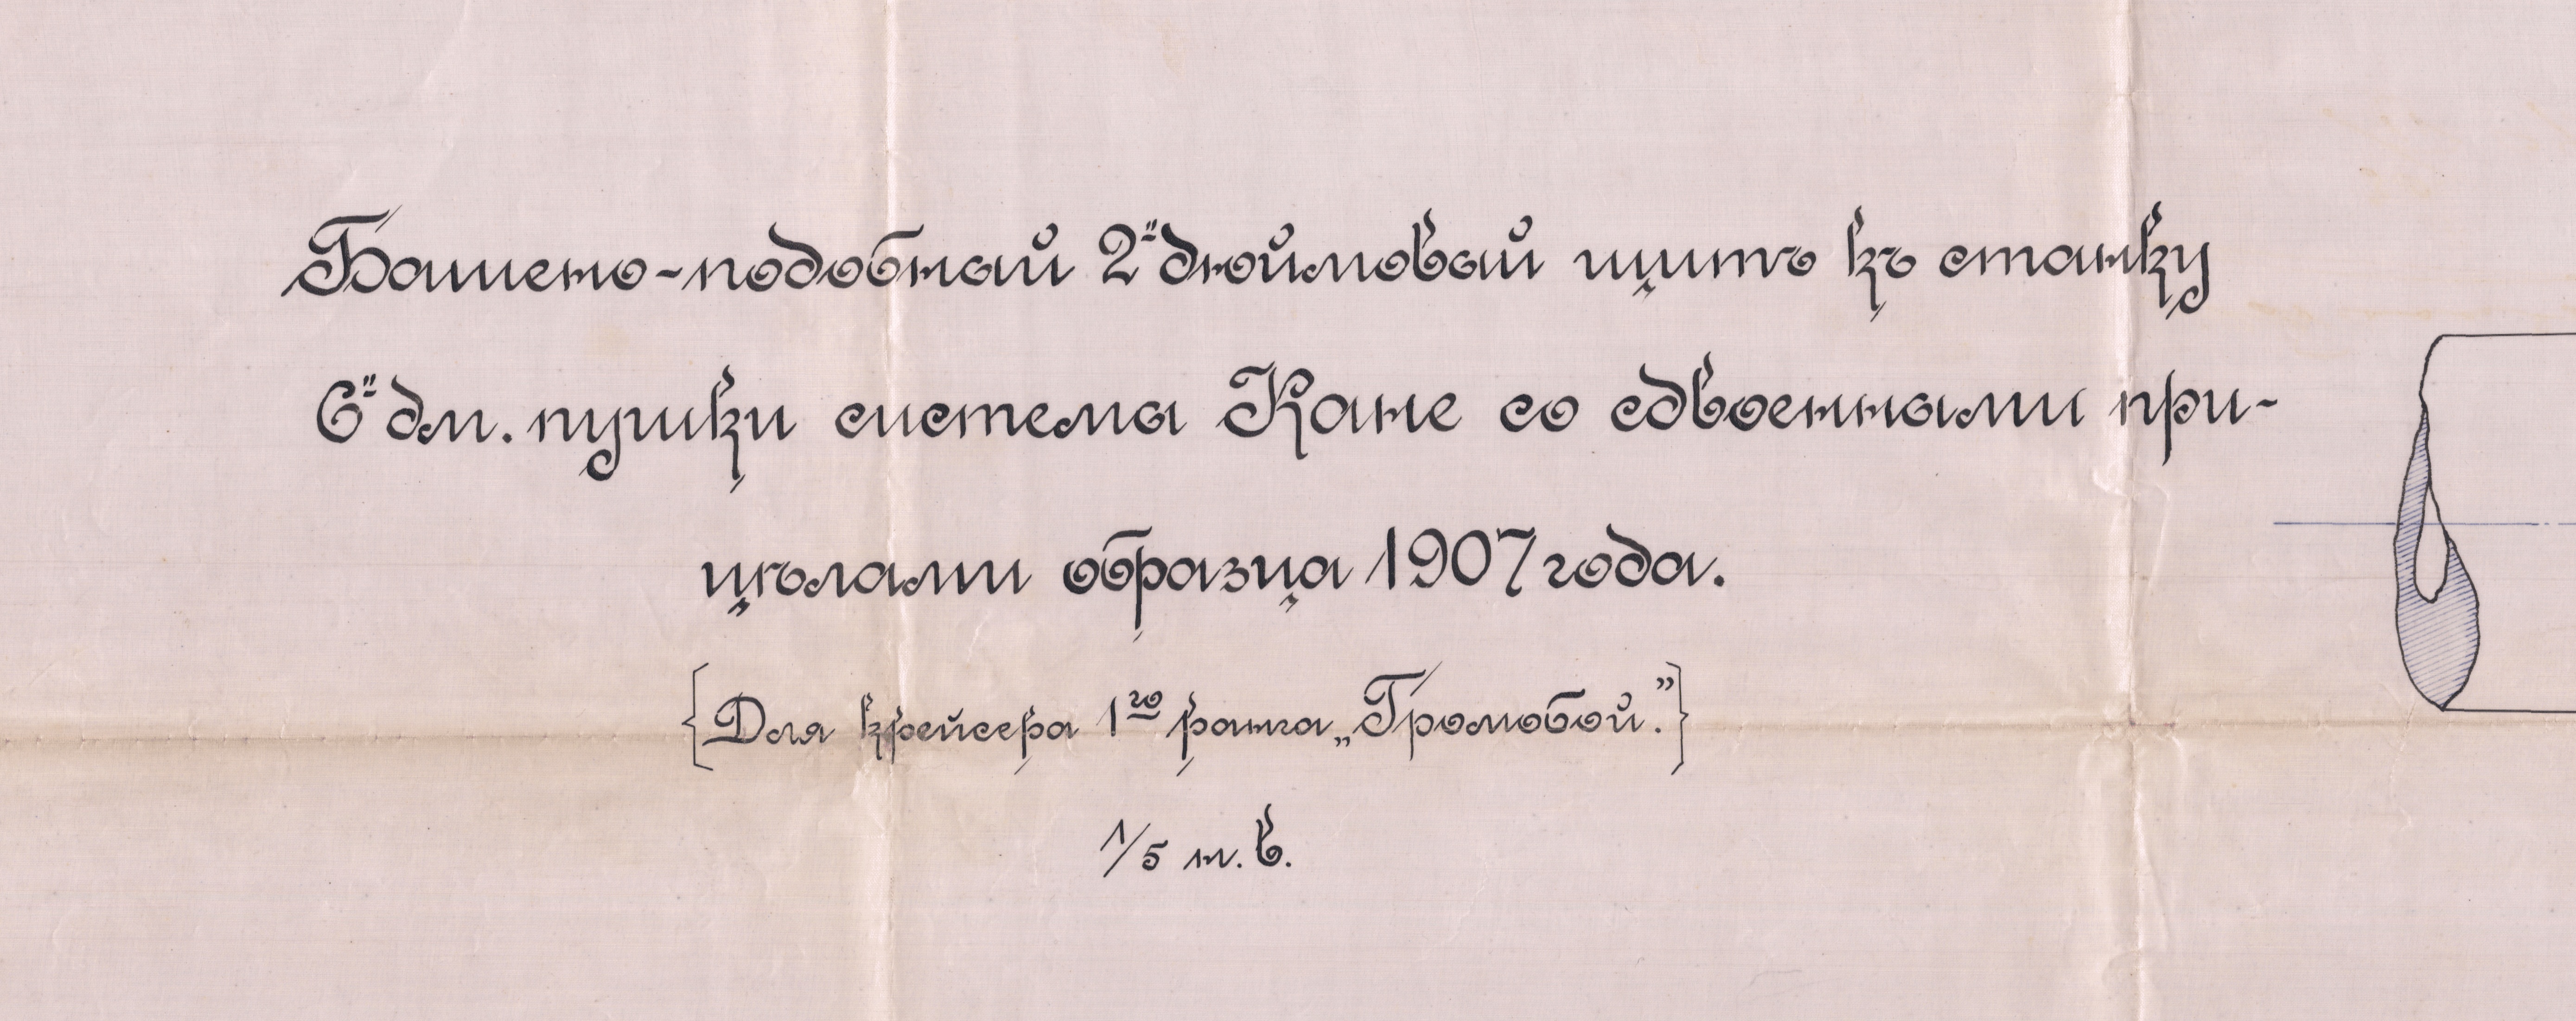 Башено-подобный 2"дюймовый щитъ къ станку
6"дм. пушки системы Кане со сдвоенными при-
цѣлами образца 1907 года.
{Для крейсера 1го ранга „Громобой.”}
1/5 н. в.